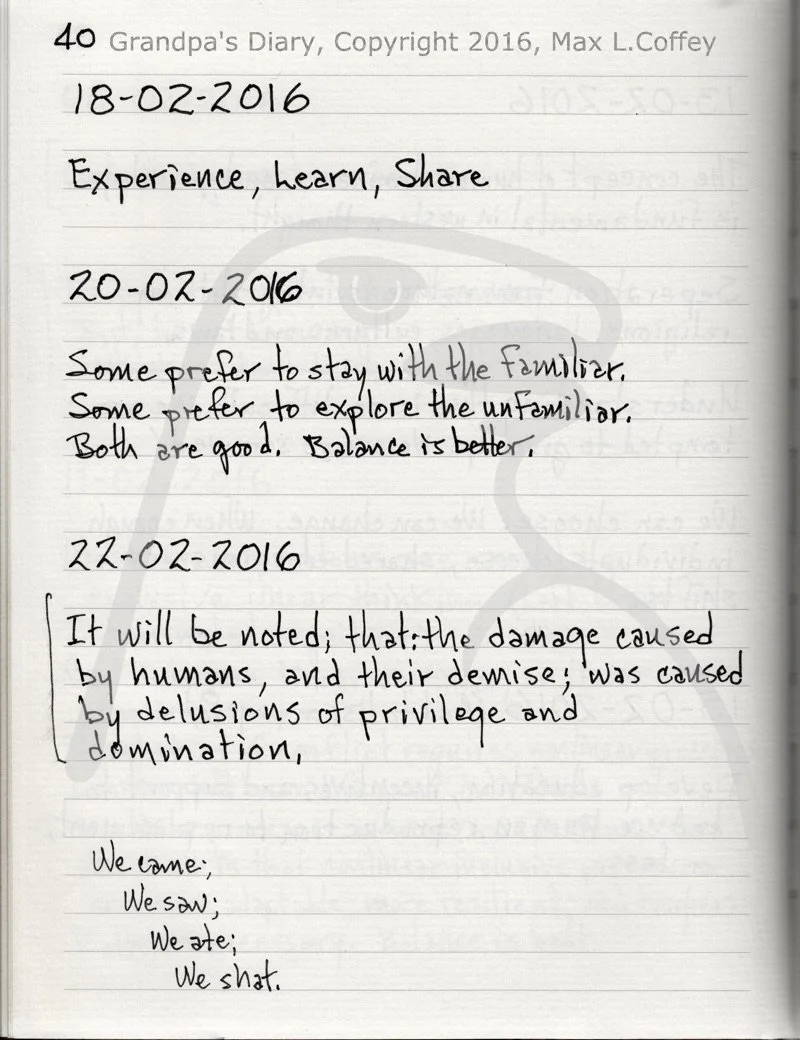 40 Grandpa's Diary, Copyright 2016, Max L.Coffey
18-02-2016
Experience, Learn, Share
20-02-2016
Some prefer to stay with the familiar.
Some prefer to explore the unfamiliar.
Both are good. Balance is better.
22-02-2016
It will be noted; that: the damage caused
by humans, and their demise; was caused
by delusions of privilege and
domination,
We came;
We saw;
We ate;
We shat.